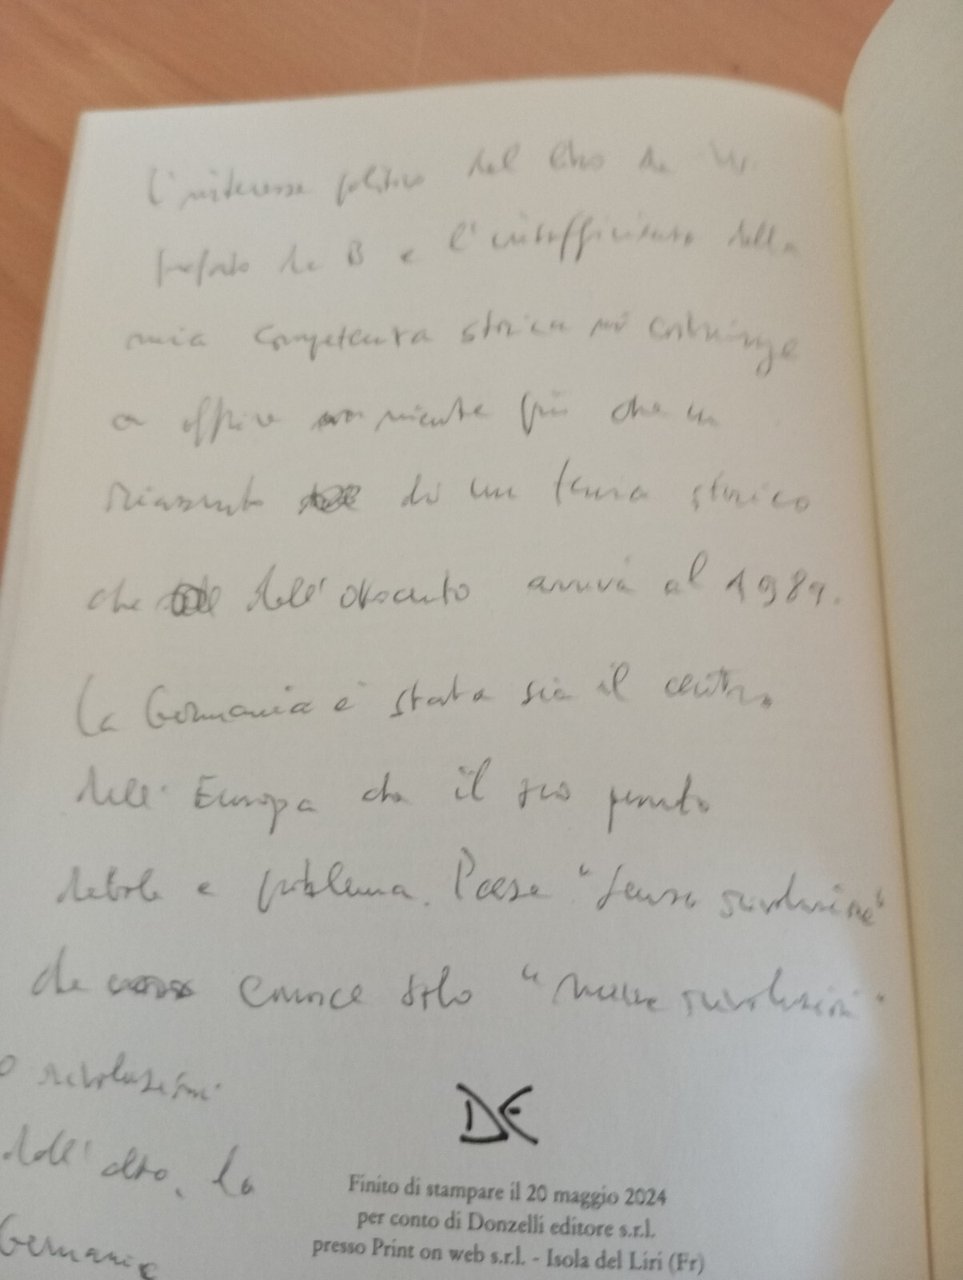 L'interesse politico del libro de
prefato da B e l'insufficienza della
mia competenza storica mi costringe
a offrire niente più che un
riassunto di un tema storico
che dall'ottocento arriva al 1989.
La Germania è stata sia il centro
dell'Europa che il suo punto
debole e problema. Paese "senza rivoluzione"
che conosce solo "mezze rivoluzioni"
o rivoluzioni
dall'alto, la
Germania
DE
Finito di stampare il 20 maggio 2024
per conto di Donzelli editore s.r.l.
presso Print on web s.r.l. - Isola del Liri (Fr)